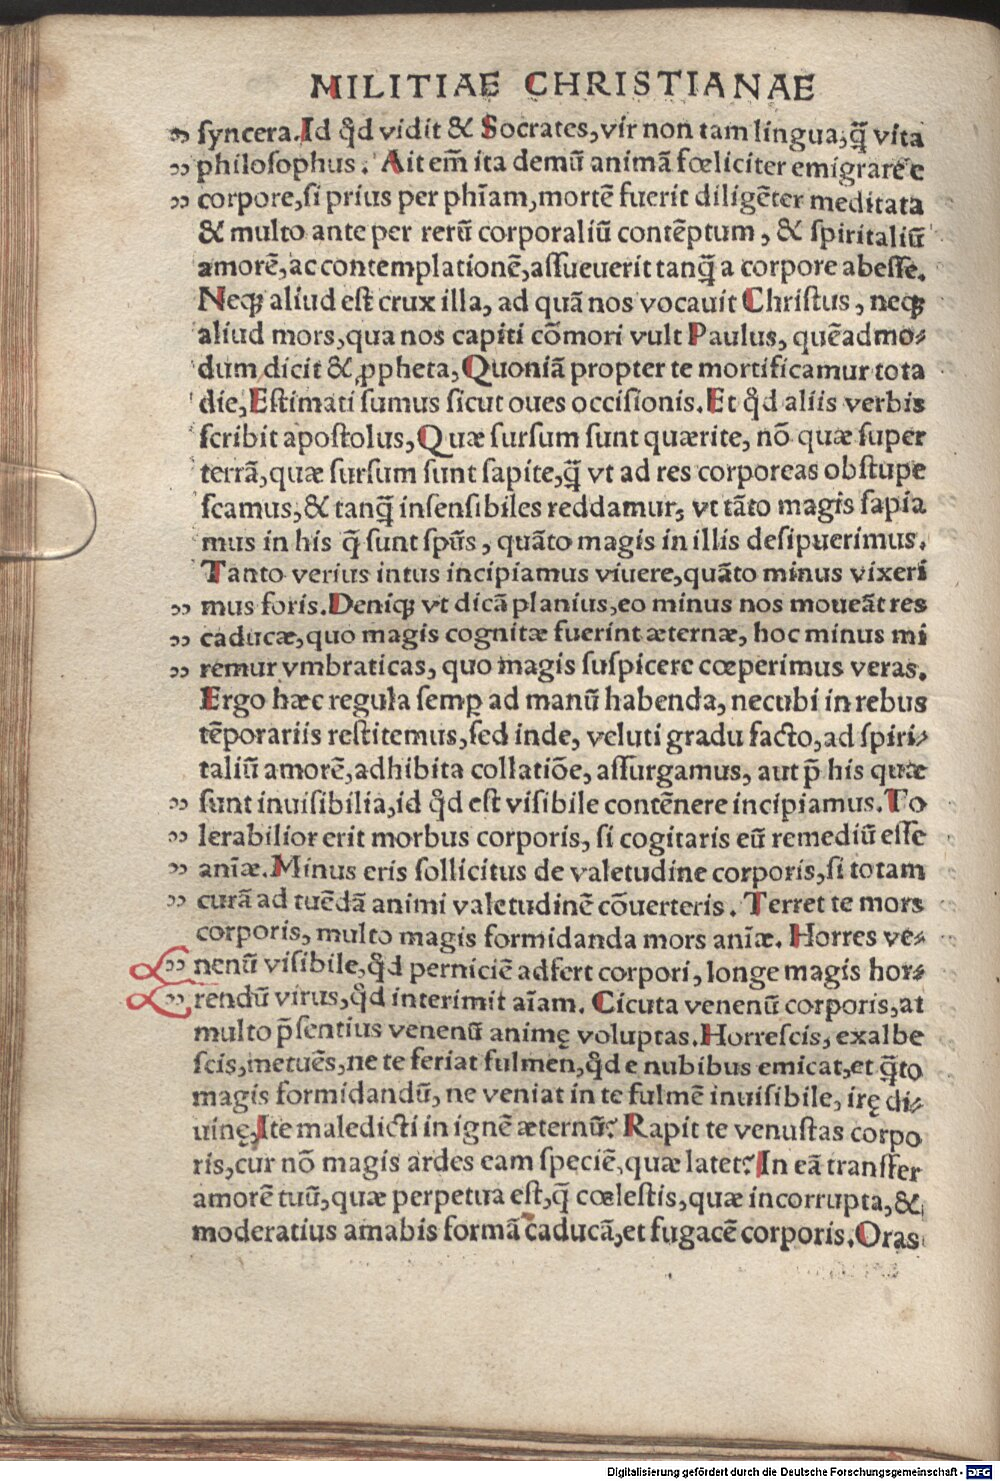 MILITIAE CHRISTIANAE
„ syncera.Id qd̉ vidit & Socrates,vir non tam lingua,q̃ vita
„ philosophus. Ait em̃ ita demũ animã fœliciter emigrare e
„ corpore,si prius per phĩam,mortẽ fuerit diligẽter meditata
& multo ante per rerũ corporaliũ contẽptum, & spiritaliũ
amorẽ,ac contemplationẽ,assueuerit tanq̃ a corpore abesse.
Neqꝫ aliud est crux illa, ad quã nos vocauit Christus, neqꝫ
aliud mors,qua nos capiti cõmori vult Paulus, quẽadmo⸗
dum dicit & ꝓpheta,Quoniã propter te mortificamur tota
die,Estimati sumus sicut oues occisionis.Et qd̉ aliis verbis
scribit apostolus,Quæ sursum sunt quærite, nõ quæ super
terrã,quæ sursum sunt sapite,q̃ vt ad res corporeas obstupe
scamus,& tanq̃ insensibiles reddamur, vt tãto magis sapia
mus in his q̃ sunt spũs, quãto magis in illis desipuerimus.
Tanto verius intus incipiamus viuere,quãto minus vixeri
„ mus foris.Deniqꝫ vt dicã planius,eo minus nos moueãt res
„ caducæ,quo magis cognitæ fuerint æternæ, hoc minus mi
„ remur vmbraticas, quo magis suspicere cœperimus veras.
Ergo hæc regula semꝑ ad manũ habenda, necubi in rebus
tẽporariis restitemus,sed inde, veluti gradu facto,ad spiri⸗
taliũ amorẽ,adhibita collatiõe, assurgamus, aut p̃ his quæ
„ sunt inuisibilia,id qd̉ est visibile contẽnere incipiamus.To
„ lerabilior erit morbus corporis, si cogitaris eũ remediũ esse
„ anĩæ.Minus eris sollicitus de valetudine corporis,si totam
„ curã ad tuẽdã animi valetudinẽ cõuerteris. Terret te mors
corporis, multo magis formidanda mors anĩæ. Horres ve⸗
„ nenũ visibile,qd̉ perniciẽ adfert corpori, longe magis hor⸗
„ rendũ virus,qd̉ interimit aĩam. Cicuta venenũ corporis,at
multo p̃sentius venenũ animę voluptas.Horrescis, exalbe
scis,metuẽs,ne te feriat fulmen,qd̉ e nubibus emicat,et q̃to
magis formidandũ, ne veniat in te fulmẽ inuisibile, irę di⸗
uinę,Ite maledicti in ignẽ æternũ? Rapit te venustas corpo
ris,cur nõ magis ardes eam speciẽ,quæ latet?In eã transfer
amorẽ tuũ,quæ perpetua est,q̃ cœlestis,quæ incorrupta,&
moderatius amabis formã caducã,et fugacẽ corporis.Oras
Digitalisierung gefördert durch die Deutsche Forschungsgemeinschaft - DFG